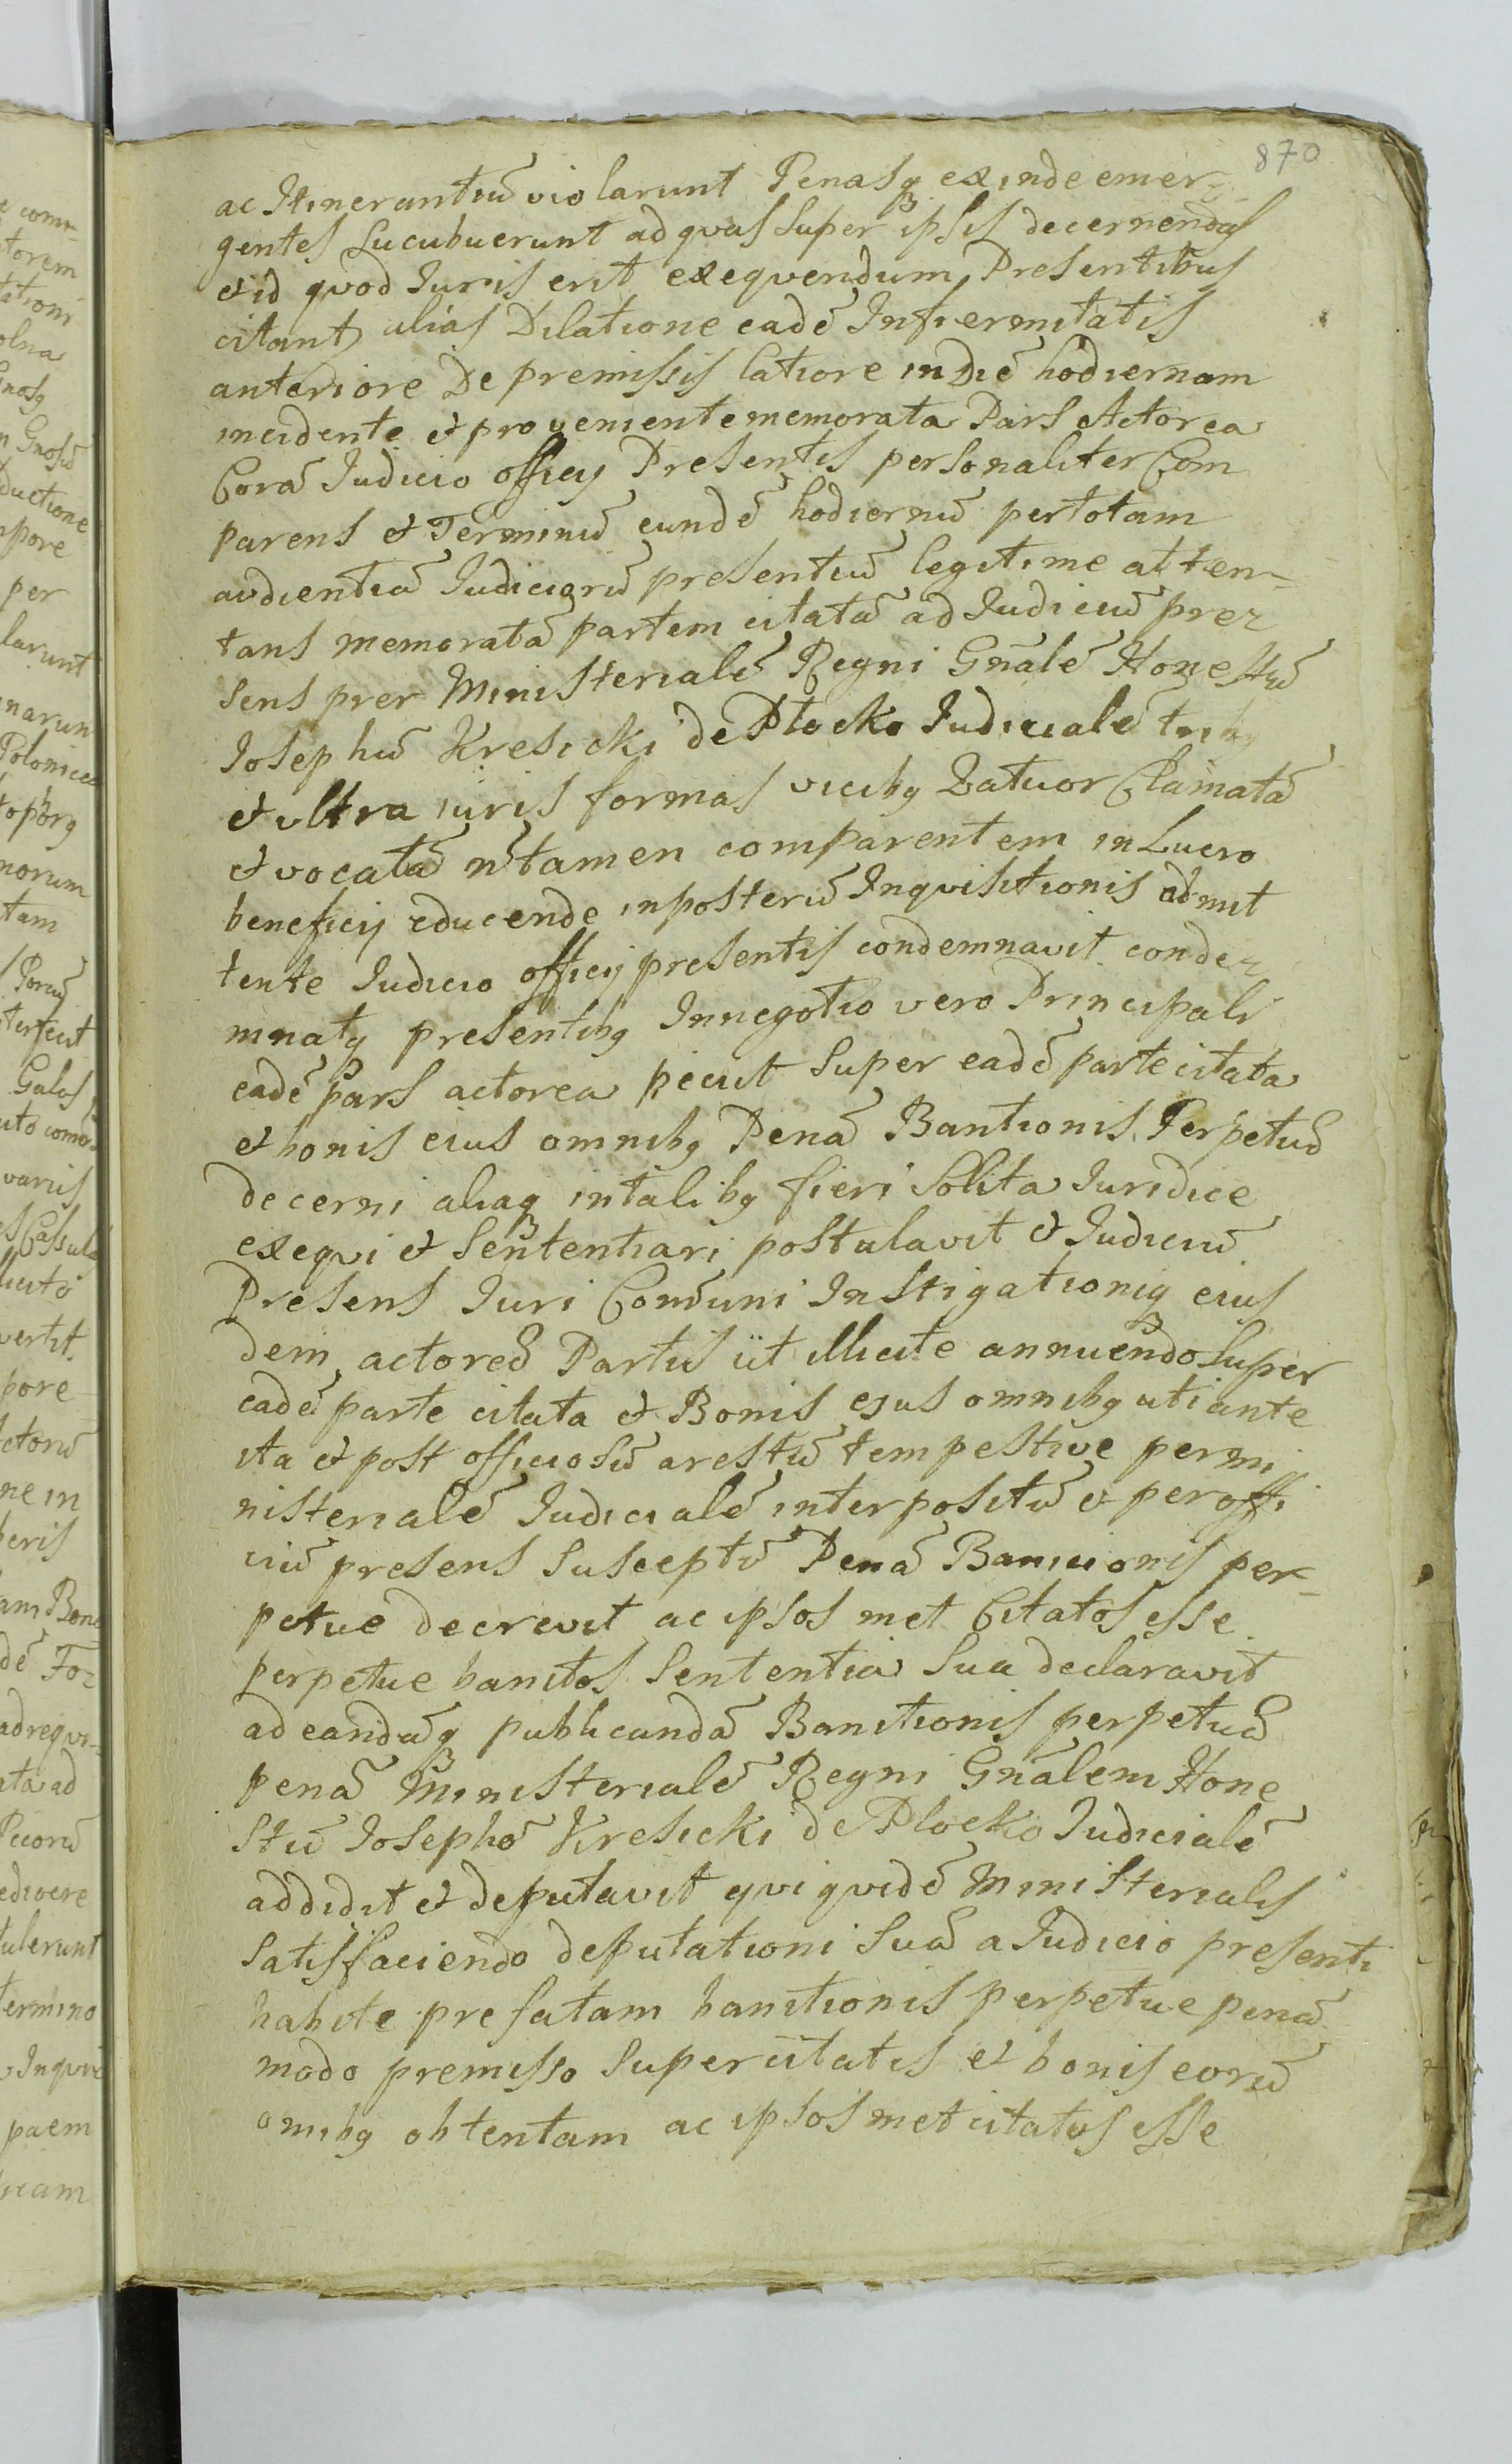 870
ac Itinerantiū violarunt Penasq̃ exinde emer-
gentes Sucubuerunt ad qvas Super ipsis decernendas
et id qvod Iuris erit exeqvendum Presentibus
citant alias Dilatione eadē Infiermitatis
anteriore De premissis latiore in Diē hodiernam
incidente et proveniente memorata Pars Actorea
Corā Iudicio officij Presentis personaliter Com
parens et Terminū eundē hodiernū per totam
audientiā Iudiciorū presentiū legitime atten-
tans memoratā partem citatā ad Iudiciū pre-
sens per Ministerialē Regni Gn̄alē Honestū
Josephū Kresicki de Plocko Iudicialē
et ultra iuris formas vicibq Qatuor Clamatā
et vocatā n̄ tamen comparentem in Lucro
beneficij educende in posterū Inqvisitionis admit
tente Iudicio officij presentis condemnavit conde-
mnatq presentibq In negotio vero Principali
eadē Pars actorea peciit Super eadē parte citata
et bonis eius omnibq Penā Banitionis Perpetuæ
decerni aliaq in talibq fieri Solita Iuridice
exeqvi et Sententiari postulavit et Iudiciū
Presens Iuri Comūni Instigationiq eius
dem actoreæ Partis ut illicite annuendo Super
eadē parte citata et Bonis ejus omnibq uti ante
ita et post officiosū arestū tempestive per mi
nisterialē Iudicialē interpositū et per offi
ciū presens Susceptū Penā Banicionis per-
petue decrevit ac ipsos met Citatos esse
perpetue banitos Sententia Sua declaravit
ad eandāq publicandā Banitionis perpetuæ
penā Ministerialē Regni Gn̄alem Hone
Stū Josephū Kresicki de Plocko Iudicialē
addidit et deputavit qvi qvidē Ministerialis
Satisfaciendo deputationi Suæ a Iudicio presenti
habite prefatam banitionis perpetue penā
modo premisso Super citatis et bonis eorū
omibq obtentam ac ipsos met citatos esse